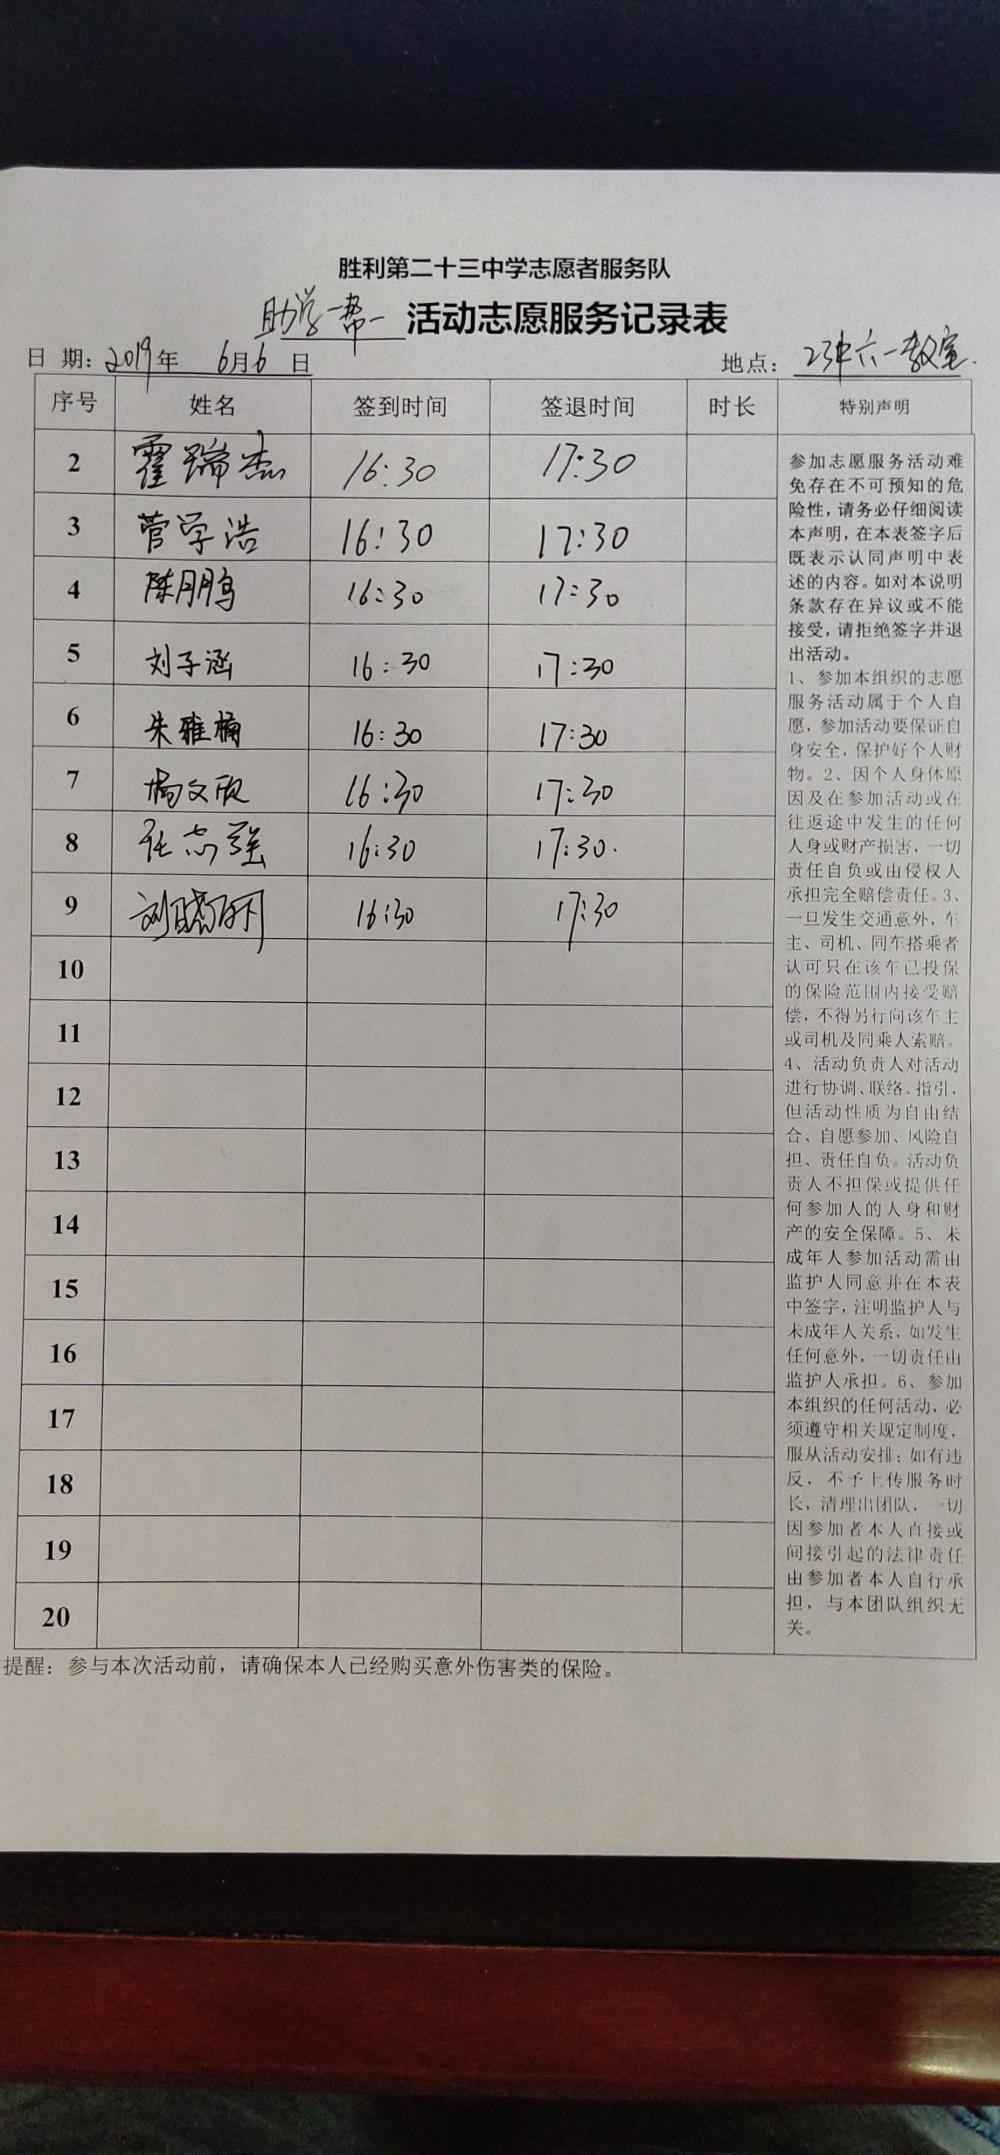 胜利第二十三中学志愿者服务队
助学一帮一 活动志愿服务记录表
日 期：2019年 6月6日 地点：23中六一教室.
序号 姓名 签到时间 签退时间 时长 特别声明
2 霍瑞杰 16:30 17:30
3 菅学浩 16:30 17:30
4 陈朋鹏 16:30 17:30
5 刘子涵 16:30 17:30
6 朱雅楠 16:30 17:30
7 杨文欣 16:30 17:30
8 任志强 16:30 17:30.
9 16:30 17:30
10
11
12
13
14
15
16
17
18
19
20
参加志愿服务活动难
免存在不可预知的危
险性，请务必仔细阅读
本声明，在本表签字后
既表示认同声明中表
述的内容。如对本说明
条款存在异议或不能
接受，请拒绝签字并退
出活动。
1、参加本组织的志愿
服务活动属于个人自
愿，参加活动要保证自
身安全，保护好个人财
物。2、因个人身体原
因及在参加活动或在
往返途中发生的任何
人身或财产损害，一切
责任自负或由侵权人
承担完全赔偿责任。3、
一旦发生交通意外，车
主、司机、同车搭乘者
认可只在该车已投保
的保险范围内接受赔
偿，不得另行向该车主
或司机及同乘人索赔。
4、活动负责人对活动
进行协调、联络、指引，
但活动性质为自由结
合、自愿参加、风险自
担、责任自负。活动负
责人不担保或提供任
何参加人的人身和财
产的安全保障。5、未
成年人参加活动需由
监护人同意并在本表
中签字，注明监护人与
未成年人关系，如发生
任何意外，一切责任由
监护人承担。6、参加
本组织的任何活动，必
须遵守相关规定制度，
服从活动安排；如有违
反，不予上传服务时
长，清理出团队，一切
因参加者本人直接或
间接引起的法律责任
由参加者本人自行承
担，与本团队组织无
关。
提醒：参与本次活动前，请确保本人已经购买意外伤害类的保险。